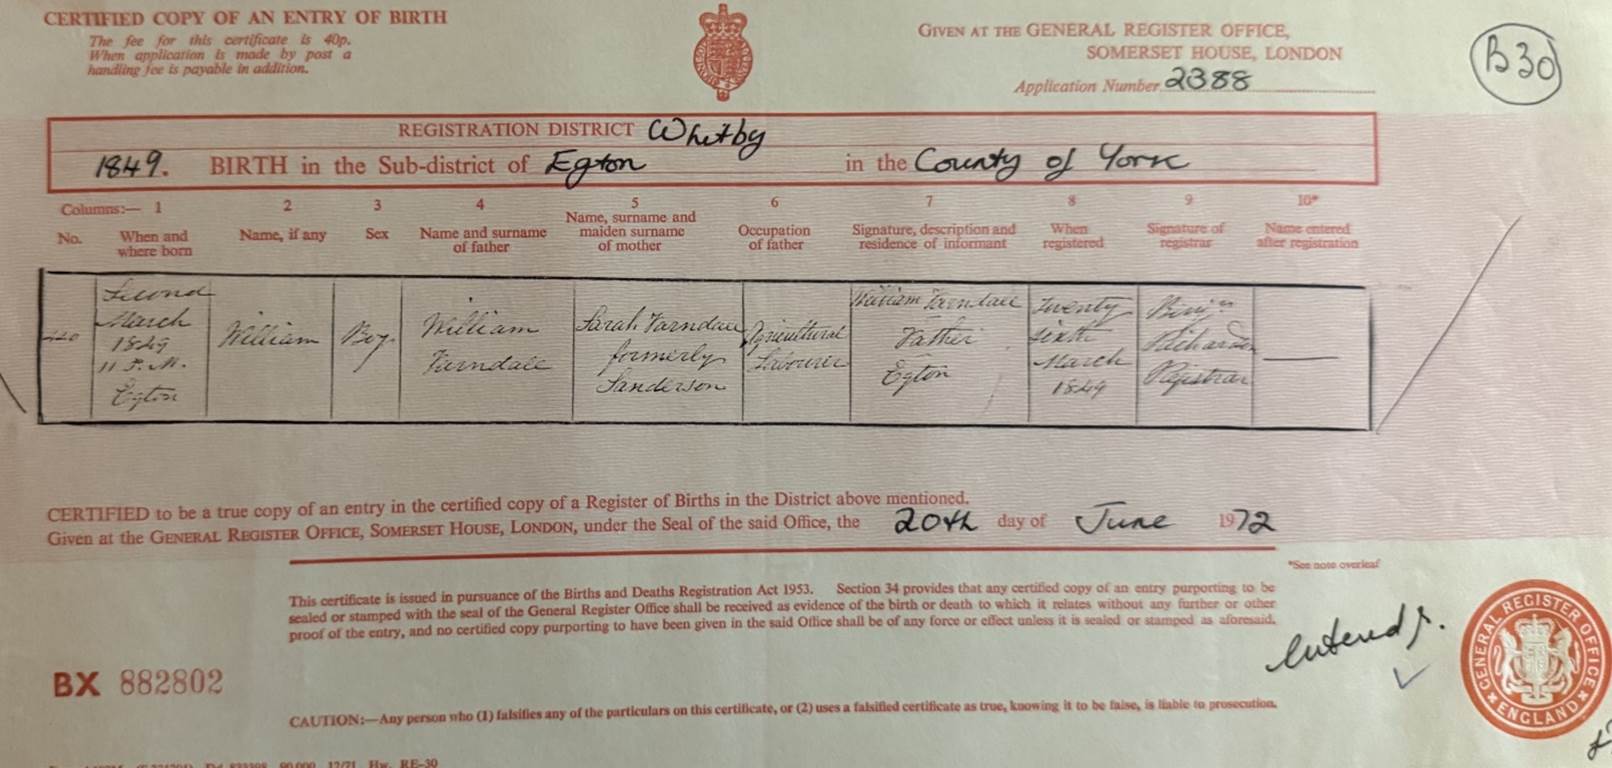 CERTIFIED COPY OF AN ENTRY OF BIRTH
The fee for this certificate is 40p.
When application is made by post a
handling fee is payable in addition.
GIVEN AT THE GENERAL REGISTER OFFICE,
SOMERSET HOUSE, LONDON
Application Number 2388
B30
REGISTRATION DISTRICT Whitby
1849. BIRTH in the Sub-district of Egton in the County of York
Columns:— 1 2 3 4 5 6 7 8 9 10*
No.
When and
where born
Name, if any
Sex
Name and surname
of father
Name, surname and
maiden surname
of mother
Occupation
of father
Signature, description and
residence of informant
When
registered
Signature of
registrar
Name entered
after registration
Second
March
1849
11 P.M.
Egton
William
Boy
William
Farndale
Sarah Farndale
formerly
Sanderson
Agricultural
Labourer
William Farndale
Father
Egton
Twenty
sixth
March
1849
Benjn
Richardson
Registrar
CERTIFIED to be a true copy of an entry in the certified copy of a Register of Births in the District above mentioned.
Given at the GENERAL REGISTER OFFICE, SOMERSET HOUSE, LONDON, under the Seal of the said Office, the 20th day of June 1972
*See note overleaf
This certificate is issued in pursuance of the Births and Deaths Registration Act 1953. Section 34 provides that any certified copy of an entry purporting to be
sealed or stamped with the seal of the General Register Office shall be received as evidence of the birth or death to which it relates without any further or other
proof of the entry, and no certified copy purporting to have been given in the said Office shall be of any force or effect unless it is sealed or stamped as aforesaid.
Entered
BX 882802
CAUTION:—Any person who (1) falsifies any of the particulars on this certificate, or (2) uses a falsified certificate as true, knowing it to be false, is liable to prosecution.
GENERAL REGISTER OFFICE
ENGLAND
12/71 Hw. RE-30